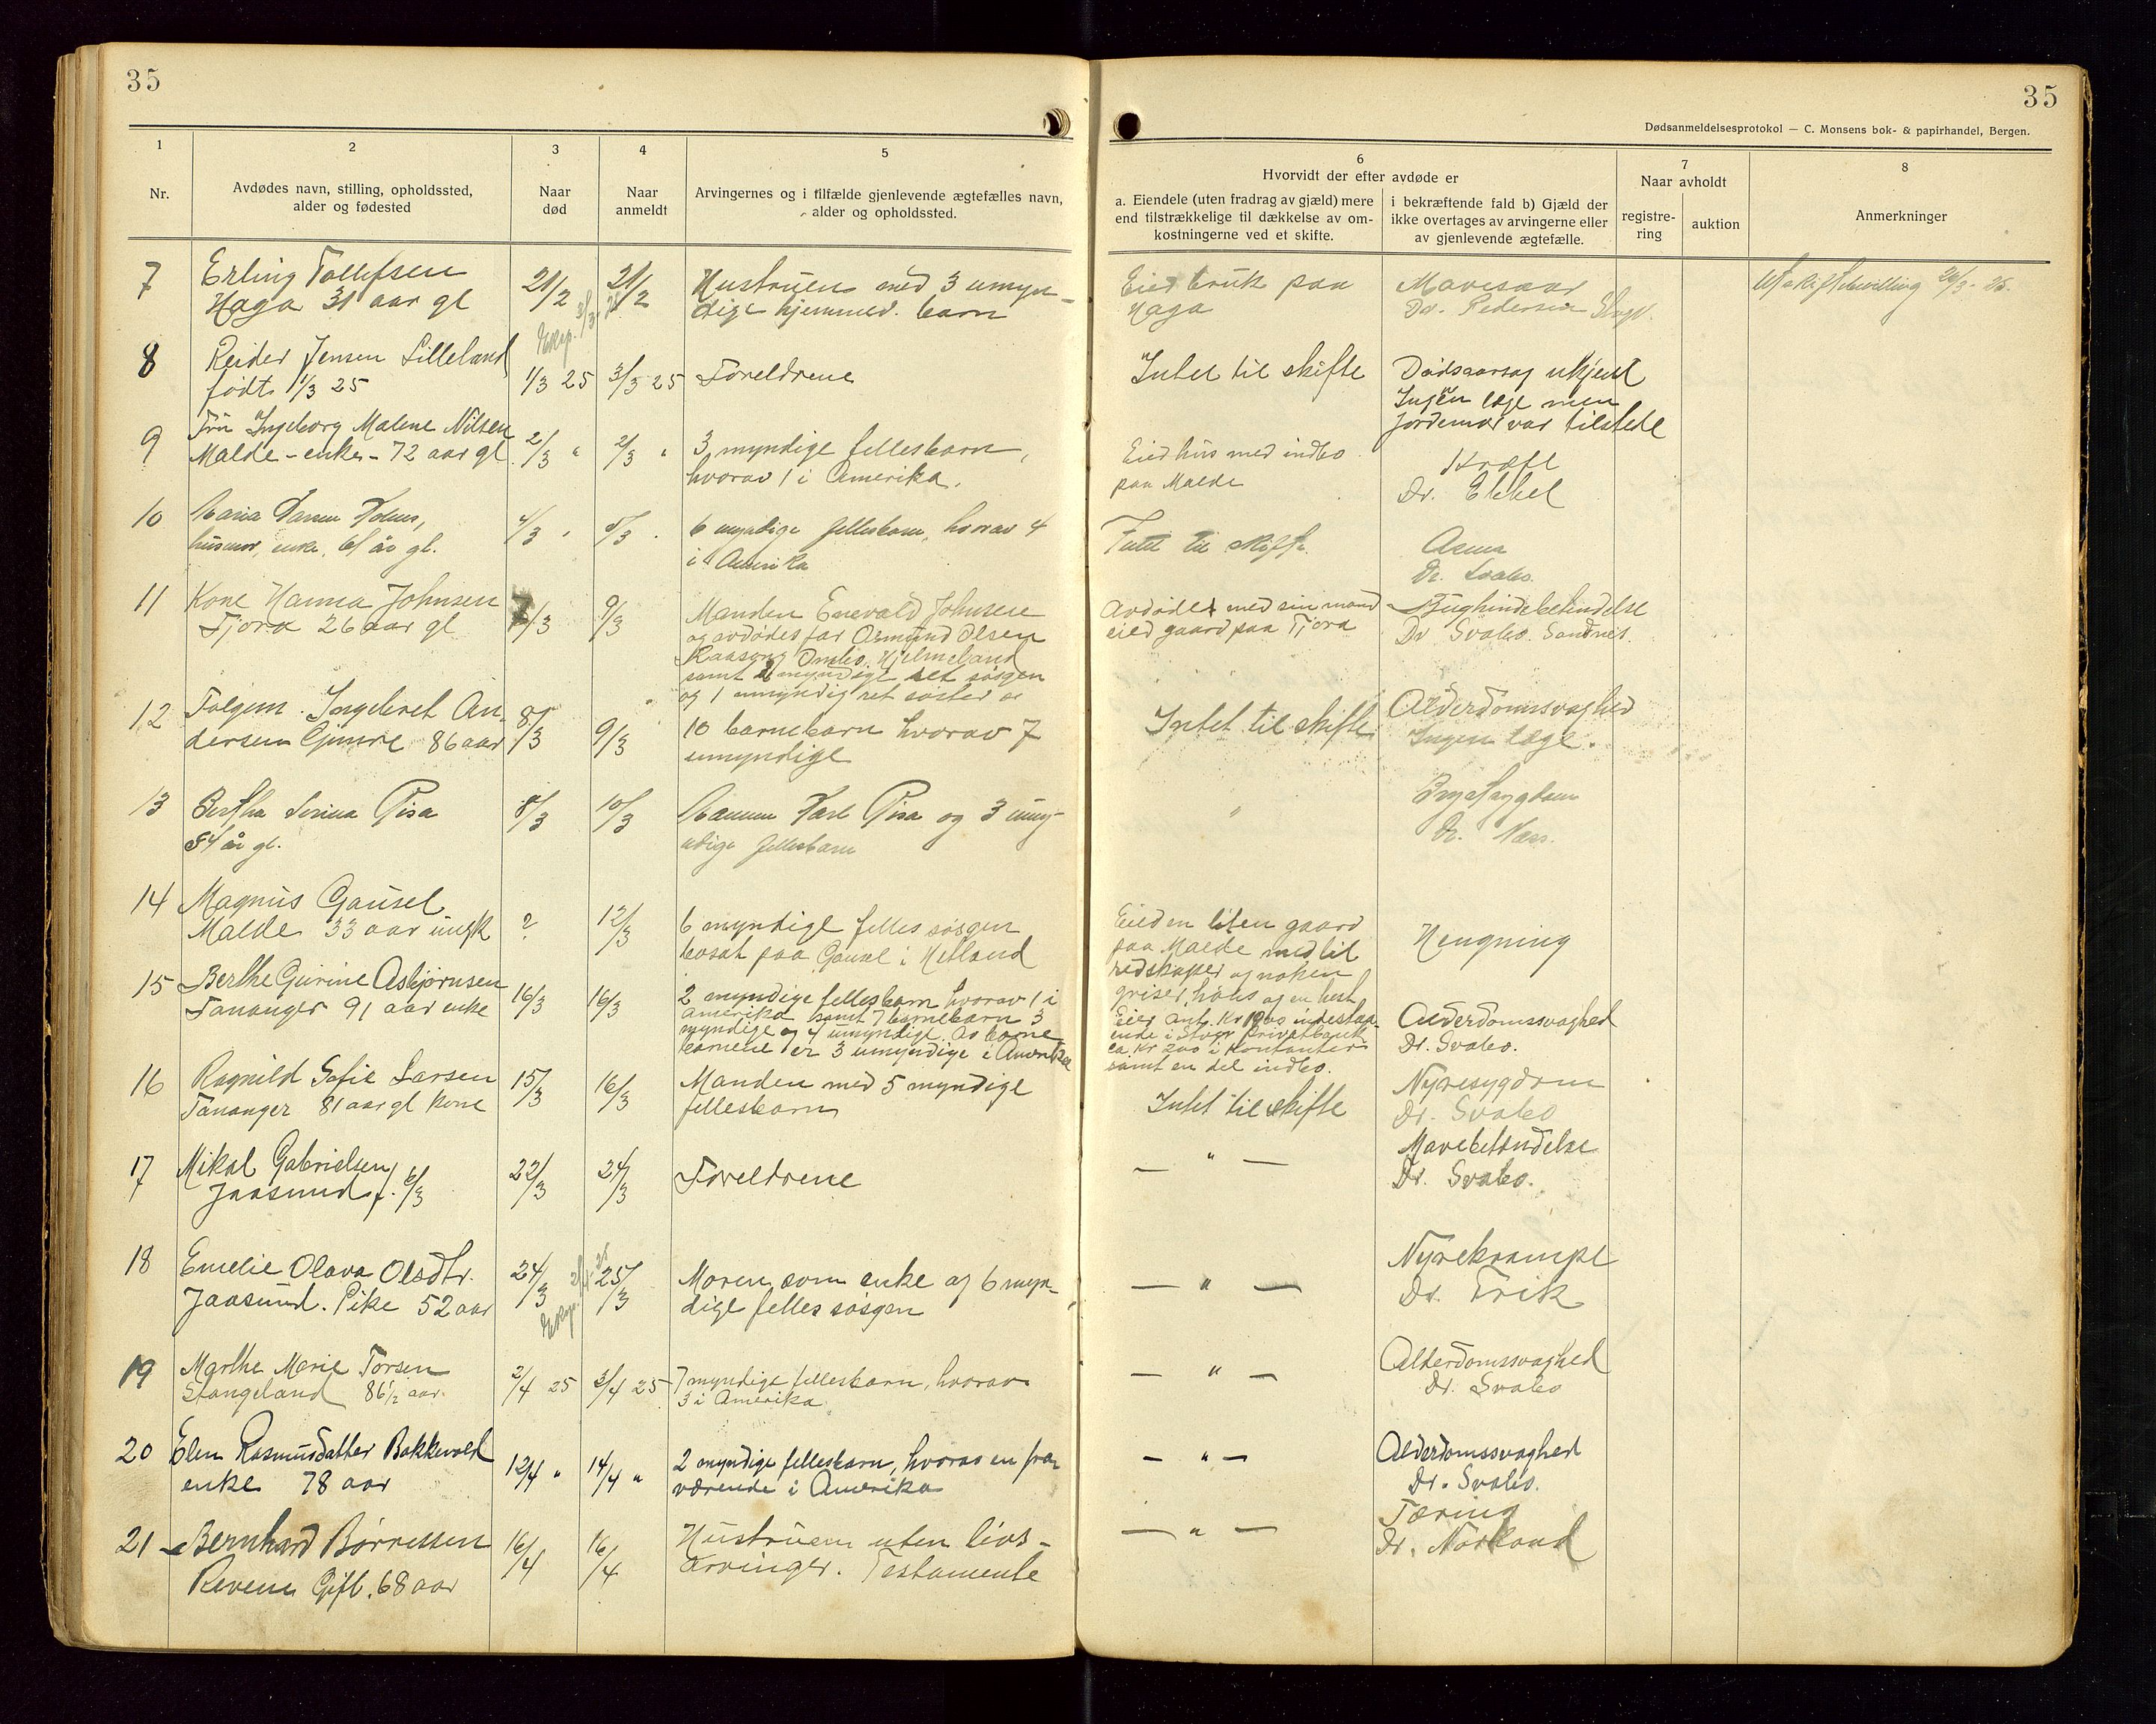 35
35
Dødsanmeldelsesprotokol — C. Monsens bok- & papirhandel, Bergen.
1
Nr.
2
Avdødes navn, stilling, opholdssted,
alder og fødested
3
Naar
død
4
Naar
anmeldt
5
Arvingernes og i tilfælde gjenlevende ægtefælles navn,
alder og opholdssted.
6
Hvorvidt der efter avdøde er
a. Eiendele (uten fradrag av gjæld) mere
end tilstrækkelige til dækkelse av om-
kostningerne ved et skifte.
i bekræftende fald b) Gjæld der
ikke overtages av arvingerne eller
av gjenlevende ægtefælle.
7
Naar avholdt
registre-
ring
auktion
8
Anmerkninger
7
Erling Tollefsen
Haga 31 aar gl
21/2
21/2
Hustruen med 3 umyn-
dige hjemmev. barn
Eied bruk paa
Haga
Mavesaar
Dr. Pedersen
Uskiftebevilling 26/3-25.
8
Reider Jensen Lilleland
født 1/3 25
1/3 25
3/3 25
Foreldrene
Intet til skifte
Dødsaarsag ukjent
Ingen læge men
Jordemor var tilstede
9
Fru Ingeborg Malene Nilsen
Malde - enke - 72 aar gl
2/3 "
2/3 "
3 myndige fellesbarn,
hvorav 1 i Amerika.
Eied hus med indbo
paa Malde
Kræft
Dr.
10
husmor, enke, 61 år gl.
4/3 "
5/3 "
6 myndige fellesbarn, hvorav 4
i Amerika
Intet til skifte
Dr. Svabo.
11
Kone Hanna Johnsen
Tjora 26 aar gl
7/3
9/3
Manden Enevald Johnsen
og avdødes far Osmund Olsen
Ombo, Hjelmeland
samt 2 myndige ret søsgen
og 1 umyndig ret søster
Avdøde med sin mand
eied gaard paa Tjora
Bughindebetendelse
Dr Svabo. Sandnes.
12
Folgem. Ingebret An-
dersen Gimre 86 aar
8/3
9/3
10 barnebarn hvorav 7
umyndige
Intet til skifte
Alderdomssvaghed
Ingen læge.
13
Bertha Serina Risa
54 år gl.
8/3
10/3
Karl Risa og 3 umyn-
dige fellesbarn
"
Brystsygdom
Dr. Næss.
14
Magnus Gausel
Malde 33 aar ungk
?
12/3
6 myndige felles søsgen
bosat paa Gausel i Hetland
Eied en liten gaard
paa Malde med lit
redskaper og noken
griser, høns og en hest
Hengning
15
Berthe Gurine Asbjørnsen
Tananger 91 aar enke
16/3
16/3
2 myndige fellesbarn hvorav 1 i
Amerika samt 7 barnebarn 3
myndige og 4 umyndige. Av barne
barnene er 3 umyndige i Amerika
Eier ant. Kr 1900 indestaa-
ende i Stvgr Privatbank
ca. Kr 200 i Kontanter
samt en del indbo.
Alderdomssvaghed
Dr. Svabo.
16
Ragnild Sofie Larsen
Tananger 81 aar gl kone
15/3
16/3
Manden med 5 myndige
fellesbarn
Intet til skifte
Nyresygdom
Dr. Svabo
17
Mikal Gabrielsen
Jaasund f. 6/3
22/3
24/3
Foreldrene
— " —
Mavebetændelse
Dr. Svabo.
18
Emelie Olava Olsdtr.
Jaasund. Pike 52 aar
24/3
25/3
Moren som enke og 6 myn-
dige felles søsgen
— " —
Nyrekrampe
Dr. Erik
19
Marthe Marie Torsen
Stangeland 86½ aar
2/4 25
2/4 25
7 myndige fellesbarn, hvorav
3 i Amerika
— " —
Alderdomssvaghed
Dr. Svabo
20
Elen Rasmusdatter Bakkevold
enke 78 aar
12/4 "
14/4 "
2 myndige fellesbarn, hvorav en fra-
værende i Amerika
— " —
Alderdomssvaghed
Dr. Svabo.
21
Bernhard Børresen
Revem Gift. 68 aar
16/4
16/4
Hustruen uten livs-
arvinger. Testamente
— " —
Tæring
Dr. Norland